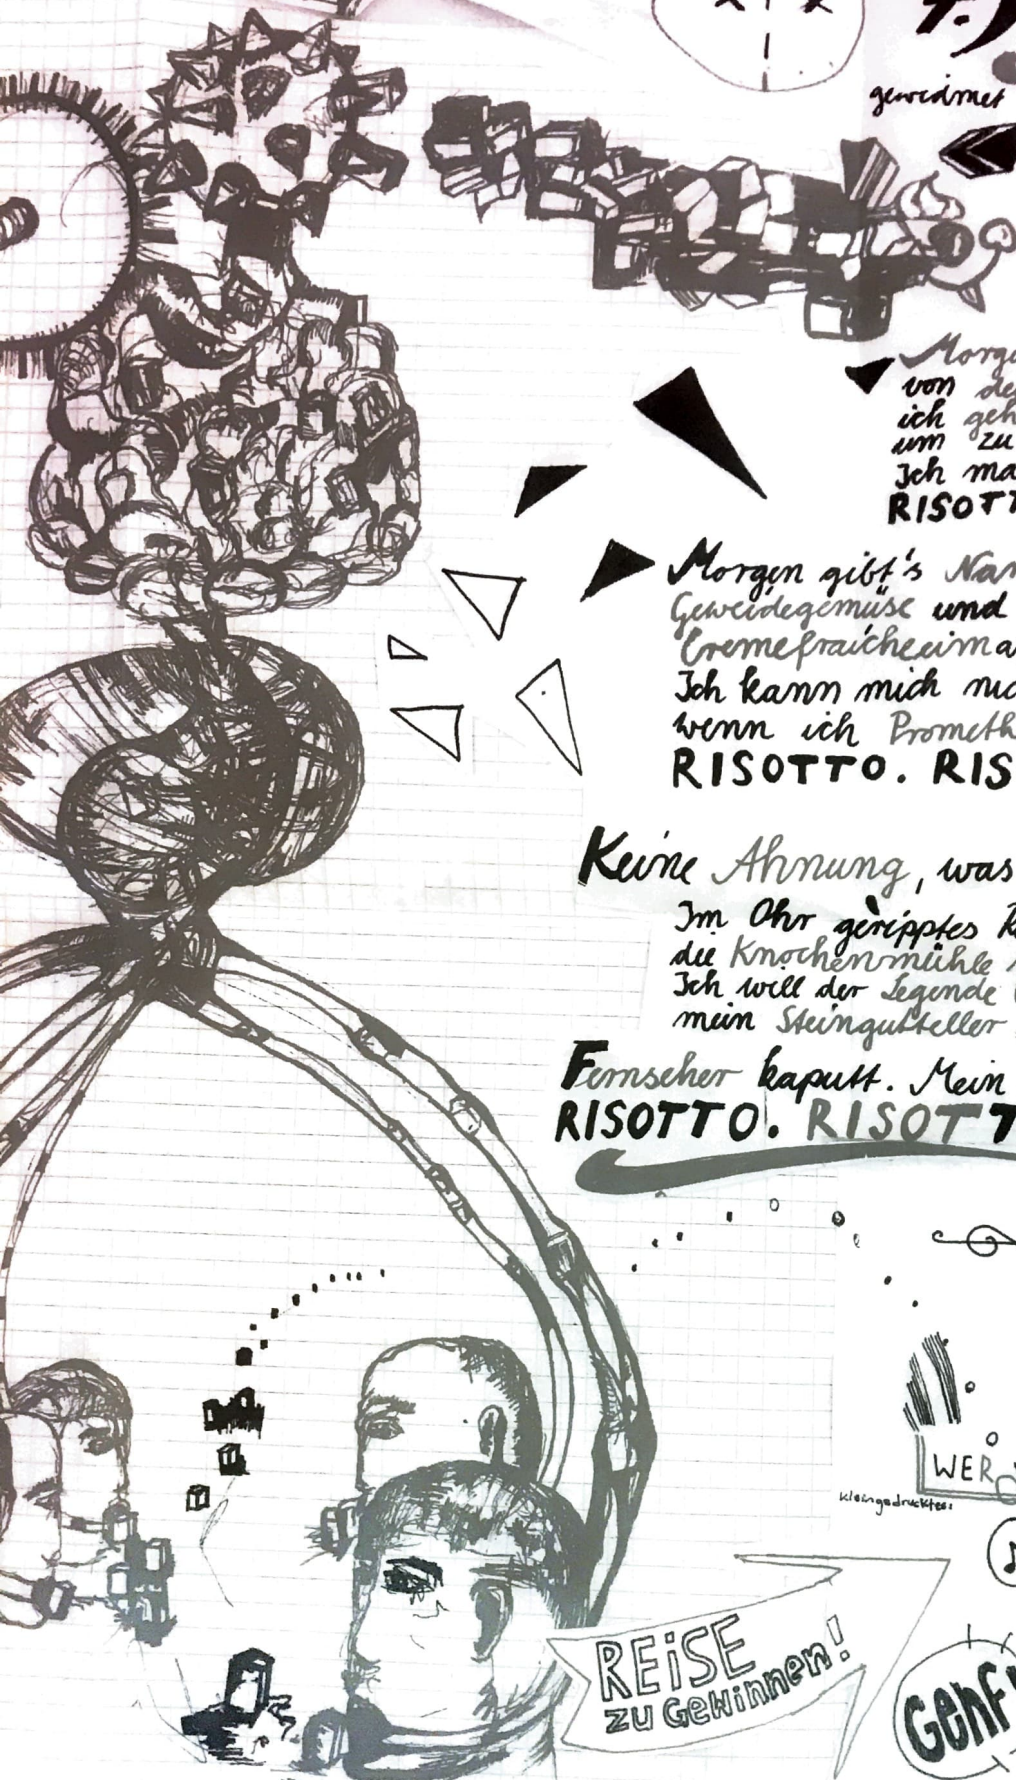 gewidmet
von
ich
um zu
Ich
RISOTT
Morgen gibt's
Geweidegemüse und
Cremefraicheeim
Ich kann mich
wenn ich Prometh
RISOTTO. RIS
Keine Ahnung, was
Im Ohr geripptes
die Knochenmühle
Ich will der Legende
mein Steingutteller
Fernseher kaputt. Mein
RISOTTO. RISOTT
WER
kleingedrucktes:
REiSE
zu GeWinnen!
GenF